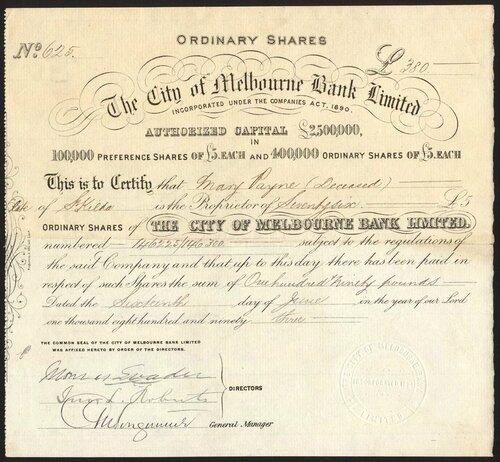 ORDINARY SHARES
No. 625.
£ 380
The City of Melbourne Bank Limited
INCORPORATED UNDER THE COMPANIES ACT, 1890.
AUTHORIZED CAPITAL £2,500,000,
IN
100,000 PREFERENCE SHARES OF £5 EACH AND 400,000 ORDINARY SHARES OF £5 EACH
This is to Certify that Mary Payne (Deceased)
late of St Kilda is the Proprietor of Seventysix £5
ORDINARY SHARES OF THE CITY OF MELBOURNE BANK LIMITED.
numbered 146225/146300 subject to the regulations of
the said Company and that up to this day there has been paid in
respect of such Shares the sum of One hundred & ninety pounds
Dated the Sixteenth day of June in the year of our Lord
one thousand eight hundred and ninety three
THE COMMON SEAL OF THE CITY OF MELBOURNE BANK LIMITED
WAS AFFIXED HERETO BY ORDER OF THE DIRECTORS.
DIRECTORS
General Manager
CITY OF MELBOURNE
LIMITED